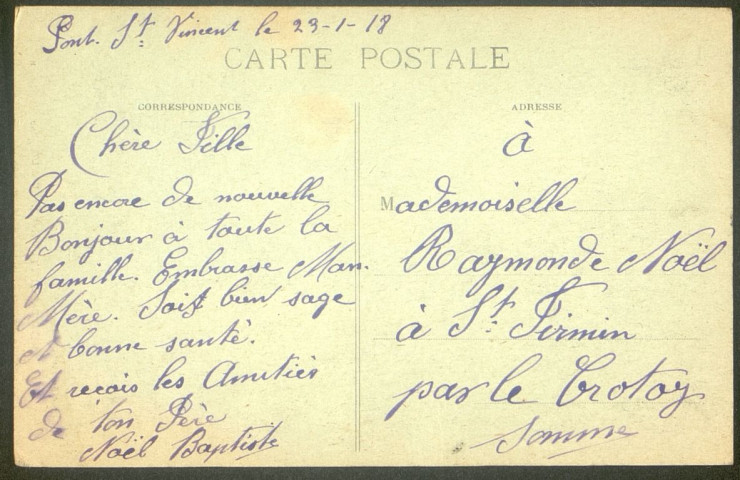 Pont. St Vincent le 23-1-18
CARTE POSTALE
CORRESPONDANCE
Chère Fille
Pas encore de nouvelle
Bonjour à toute la
famille. Embrasse
Mère. Soit bien sage
et bonne santé.
Et reçois les Amitiés
de ton Père
Noël Baptiste
ADRESSE
à
Mademoiselle
Raymonde Noël
à St Firmin
par le Crotoy
Somme